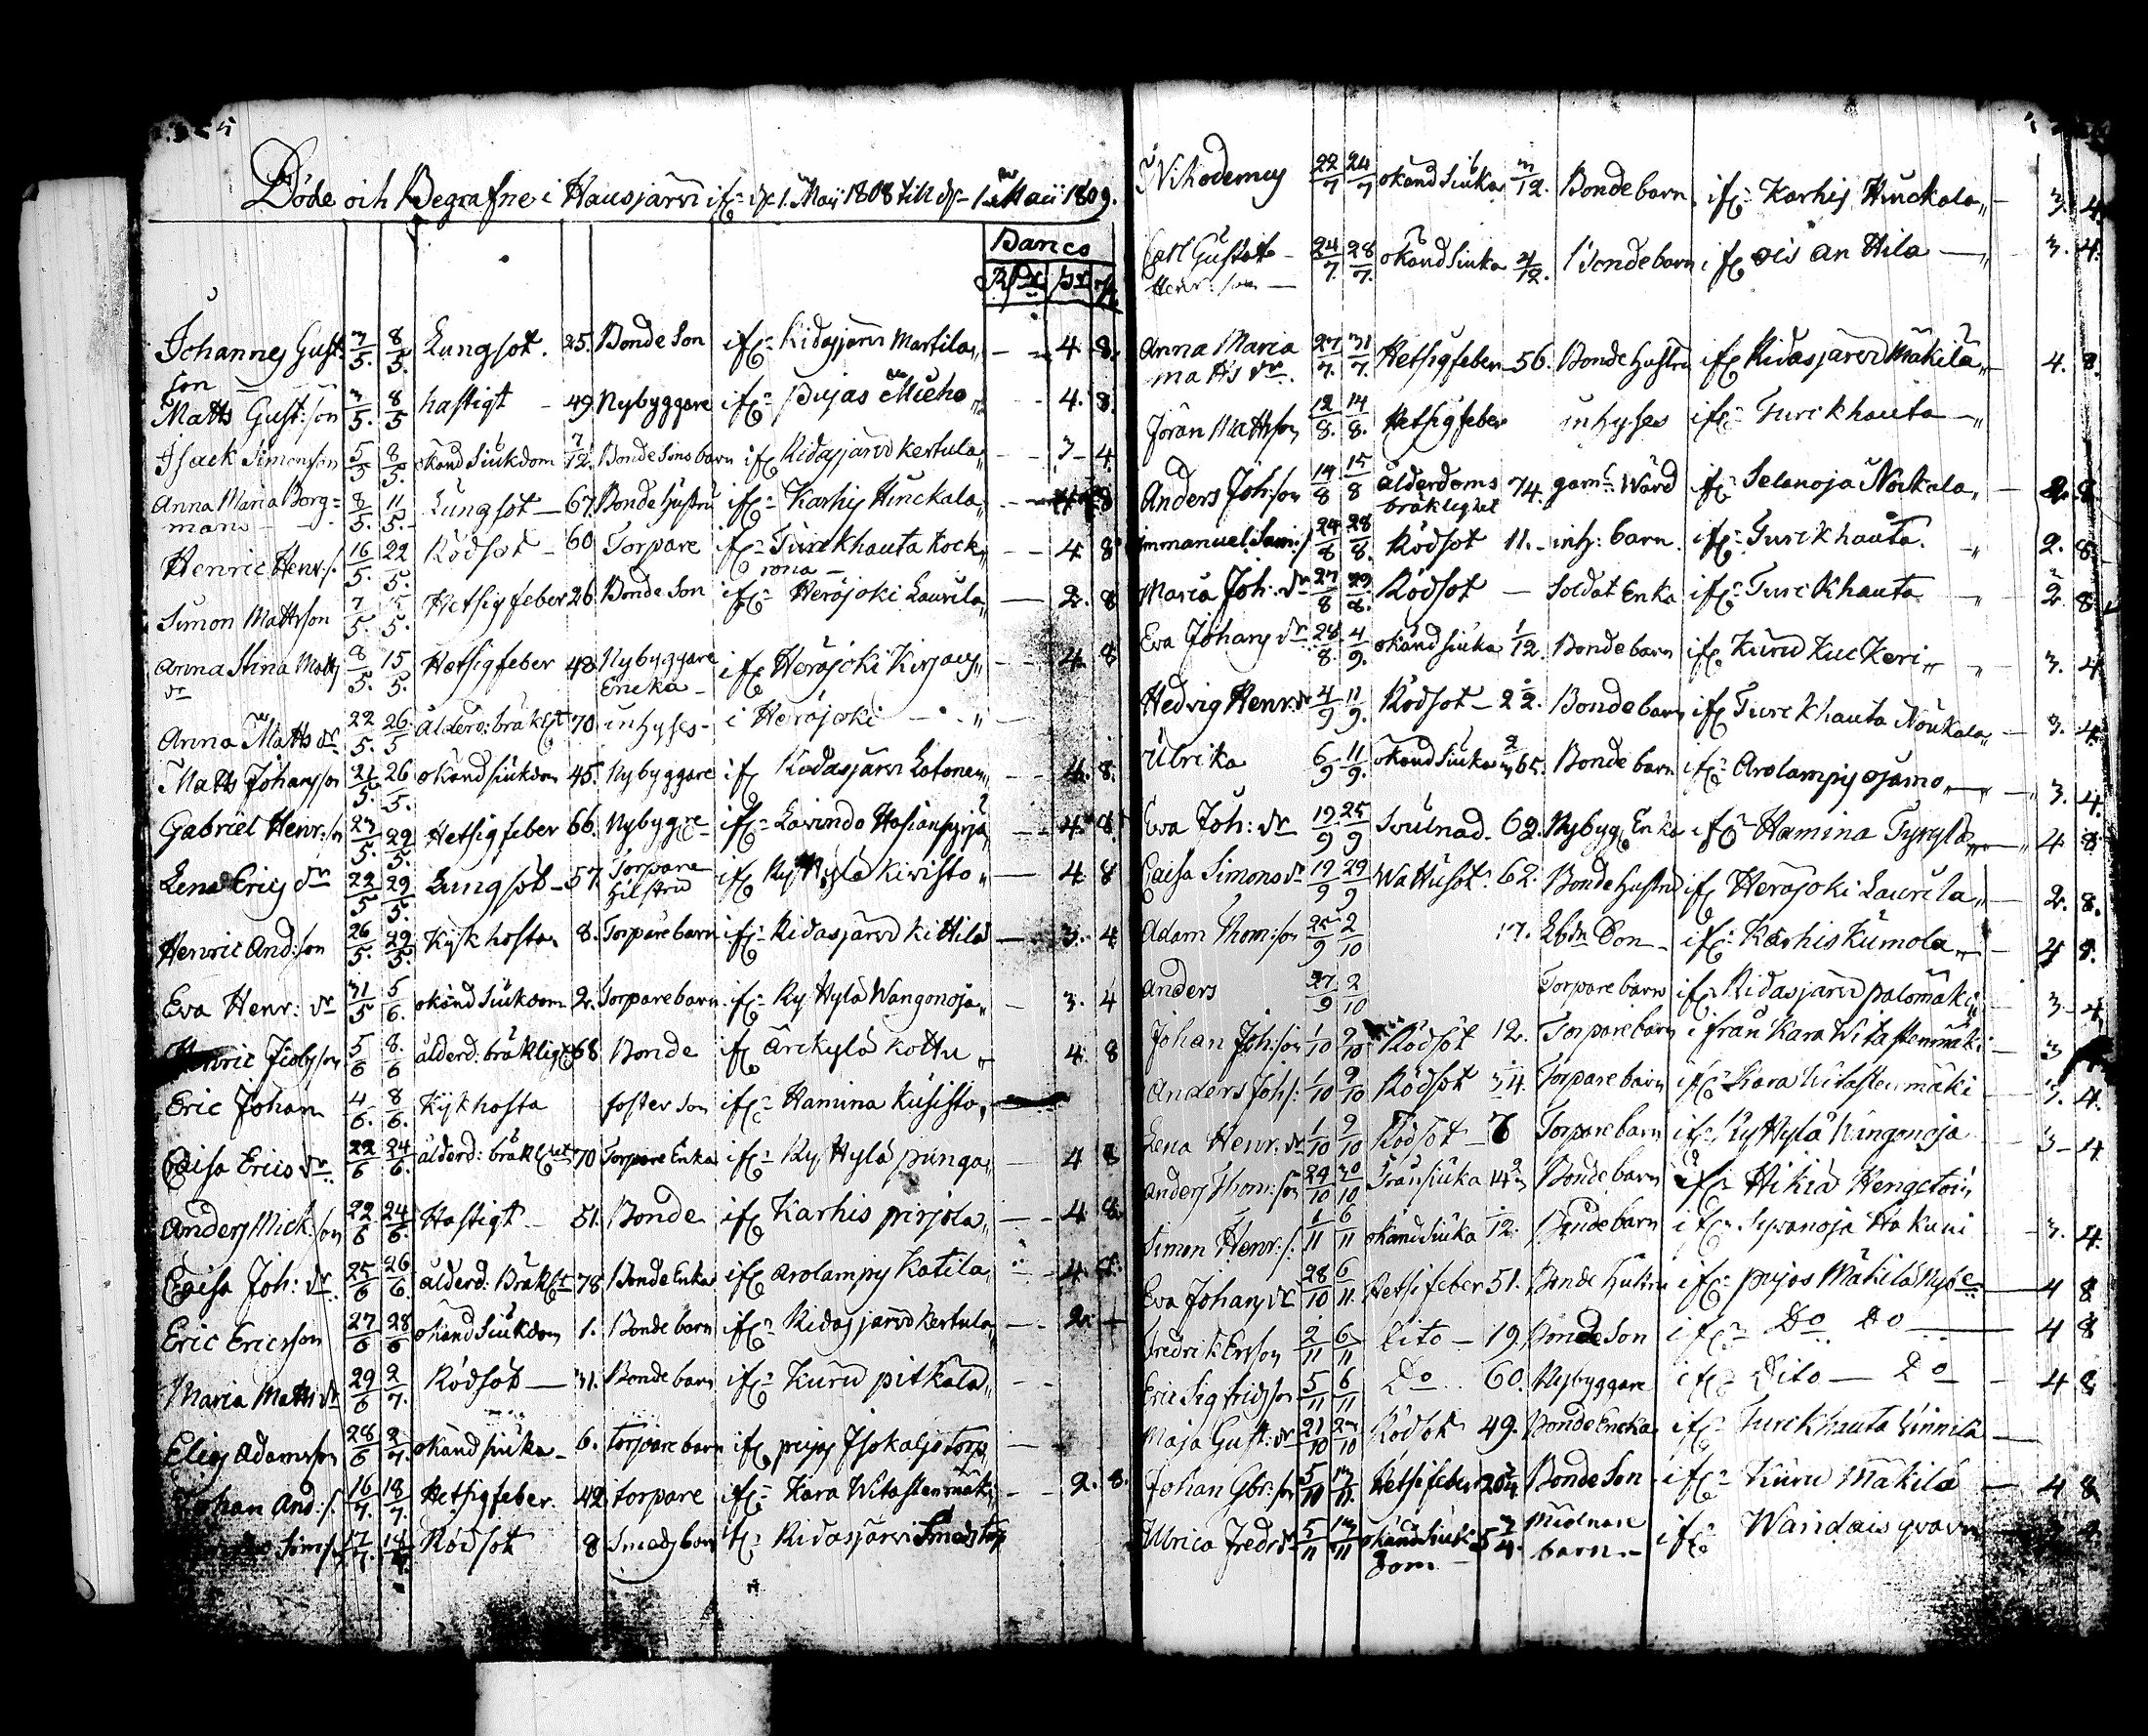 Döde och Begrafne i Hausjärvi ifr: d: 1. Maij 1808 till d: 1. Maii 1809.
Banco
RD: sk: rs
Johannes Gust: 7/5. 8/5. Lungsot. 25. Bonde Son ifr: Ridasjärvi Martila - 4. 8.
son
Matts Gust: son 3/5. 8/5 hastigt - 49 Nybyggare ifr: Pujas - 4. 8.
Isack Simonson 5/5 8/5. okänd Siukdom 7/12. Bonde Sons barn ifr Ridasjärvi Kertula - 3 - 4.
Anna Maria Borg= 8/5. 11/5. Lungsot - 67. Bonde Hustru ifr: Karhis Huckala - 4 8
man
Henric Henr: s. 16/5. 22/5. Rödsot - 60 Torpare ifr: Turckhauta Kock - 4 8
rona -
Simon Mattsson 7/5. 15/5. Hetsig feber 26 Bonde Son ifr: Heräjoki Laurila - 2. 8
Anna Stina Matts 8/5. 15/5. Hetsigfeber 48. Nybyggare ifr Heräjoki Kirjavs - 4. 8
dr Encka -
Anna Matts dr 22/5. 26/5 ålderd: bräkl:t 70 inhyses - i Heräjoki -
Matts Johansson 21/5. 26/5. okänd siukdom 45. Nybyggare ifr Ridasjärvi Latonen - 4. 8.
Gabriel Henr: sn 27/5. 29/5. Hetsig feber 66. Nybygre ifr: Lavinda - 4. 8
Lena Erics dr 22/5 29/5. Lungsot - 57. Torpare ifr Ryttylä Kivisto - 4. 8
Hustru
Henric And: son 26/5. 29/5. Kykhosta. 8. Torpare barn ifr: Ridasjärvi Kittilä - 3. 4
Eva Henr: dr 31/5 5/6. okänd Siukdom 2. Torpare barn ifr: Ry Hylä Wangonoja - 3. 4
Henric Jacobsson 5/6 8/6 ålderd: bräklight 68 Bonde ifr Ärckylä Kottu - 4. 8
Eric Johan 4/6. 8/6. Kykhosta foster Son ifr: Hamina Kusisto
Caisa Erics dr 22/6 24/6. ålderd: bräkl:het 70 Torpare Enka ifr: Ry Hylä Punga - 4 8
Anders Mick: son 22/6 24/6. Hastigt - 51. Bonde ifr Karhis Pirjola - 4 8.
Caisa Joh: dr. 25/6 26/6. ålderd: Bräkl:t 78 Bonde Enka ifr Arolampy Katila - 4
Eric Ericsson 27/6 28/6 okänd Siukdom 1. Bonde barn ifr: Ridasjärvi Kertula - 2.
Maria Matts dr 29/6 2/7. Rödsot - 31. Bonde barn ifr: Kuru Pitkälä
Elias Adamsson 28/6 2/7. okänd siuka - 6. torpare barn ifr pujas Isokaljo torp
Johan And: s. 16/7. 18/7. Hetsigfeber. 42 torpare ifr: Kara Witastenmäki - 2. 8.
17/7. Rödsot 8 Smeds barn ifr: Ridasjärvi Smedstorp
Nikodemus 22/7 24/7 okänd Siuka 3/12. Bonde barn ifr: Karhis Huckala - 3 4.
Carl Gustaf 24/7. 28/7. okänd Siuka 4/12. Bonde barn ifr Hila - 3. 4.
Henr: son
Anna Maria 27/7. 31/7. Hetsigfeber 56. Bonde Hustru ifr Ridasjärvi Mäkilä - 4. 8.
Matts dr.
Jöran Mattsson 12/8. 14/8. Hetsigfeber inhyses ifr: Turckhauta
Anders Joh: son 14/8 15/8 ålderdoms 74. gaml: Wärd ifr: Selanoja Nockala - 2. 8.
bräklighet
Immanuel Sam: s 24/8 28/8. Rödsot 11. - inh: barn. ifr: Turckhauta. - 2. 8.
Maria Joh: dr 27/8 29/8. Rödsot - Soldat Enka ifr: Turckhauta - 2. 8.
Eva Johans dr 28/8. 4/9. okänd siuka 1/12. Bonde barn ifr Kuru Kuckeri - 3. 4
Hedvig Henr: dr 4/9 11/9. Rödsot - 2 Bonde barn ifr Turckhauta Noukala - 3. 4.
Ulrika 6/9 11/9. okänd Siuka Bonde barn ifr: Arolampis Ojamo - 3. 4.
Eva Joh: dr 19/9 25/9 Svulnad. 62. Nybyg: Enka ifr: Hamina - 4 8
Caisa Simons dr 19/9 29/9 Wattusot. 62. Bonde Hustru ifr Heräjoki Laurila - 2. 8.
Adam Thom: son 25/9 2/10 17. Son - ifr: Karhis Kumola - 4 8.
Anders 27/9 2/10 Torpare barn ifr Ridasjärvi Palomäki - 3 - 4
Johan Joh: son 1/10 9/10 Rödsot 12. Torpare barn ifrån Kara Witastenmäki - 3
Anders Joh s: 1/10 9/10 Rödsot 3 Torpare barn ifr: Kara Witastenmäki - 3. 4.
Lena Henr: dr 1/10 9/10 Rödsot - 6 Torpare barn ifr: Ry Hylä Wangonoja - 3 - 4
Anders Thom: son 24/10 30/10 Tränsiuka Bonde barn ifr Hikiä Hengetoin
Simon Henr: s. 1/11 6/11 okänd Siuka /12. Bonde barn ifr: Syvänoja Hakuni - 3. 4.
Eva Johans dr 28/10 6/11. Hetsi feber 51. Bonde Hustru ifr: pujas Mäkilä Nyb: - 4 8
Fredrik Ersson 2/11 6/11 Dito - 19. Bonde Son ifr: Do Do - 4 8
Eric Sigfridsson 5/11 6/11 Do 60. Nybyggare ifr: Dito - Do - 4 8
Maja Gust: dr 21/10 27/10 Rödsot 49. Bonde Encka ifr: Turckhauta Linnila -
Johan Gbr: son 5/11 13/11. Hetsi feber 20 Bonde Son ifr: Kuru Mäkilä - 4 8
Ulrica Fredrs dr 5/11 13/11 okänd Siuk= 5 Miölnare ifr: Wandais qvarn
dom - barn. -